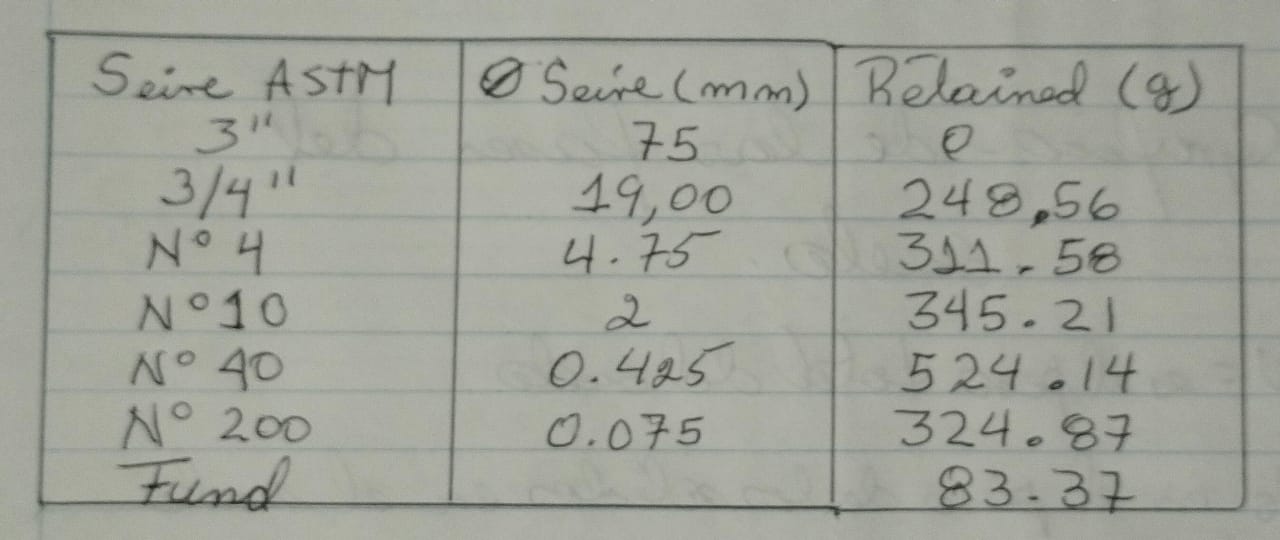 Seive ASTM Ø Seive (mm) Retained (g)
3" 75 0
3/4" 19,00 248,56
Nº 4 4.75 311.58
Nº 10 2 345.21
Nº 40 0.425 524.14
Nº 200 0.075 324.87
Fund 83.37